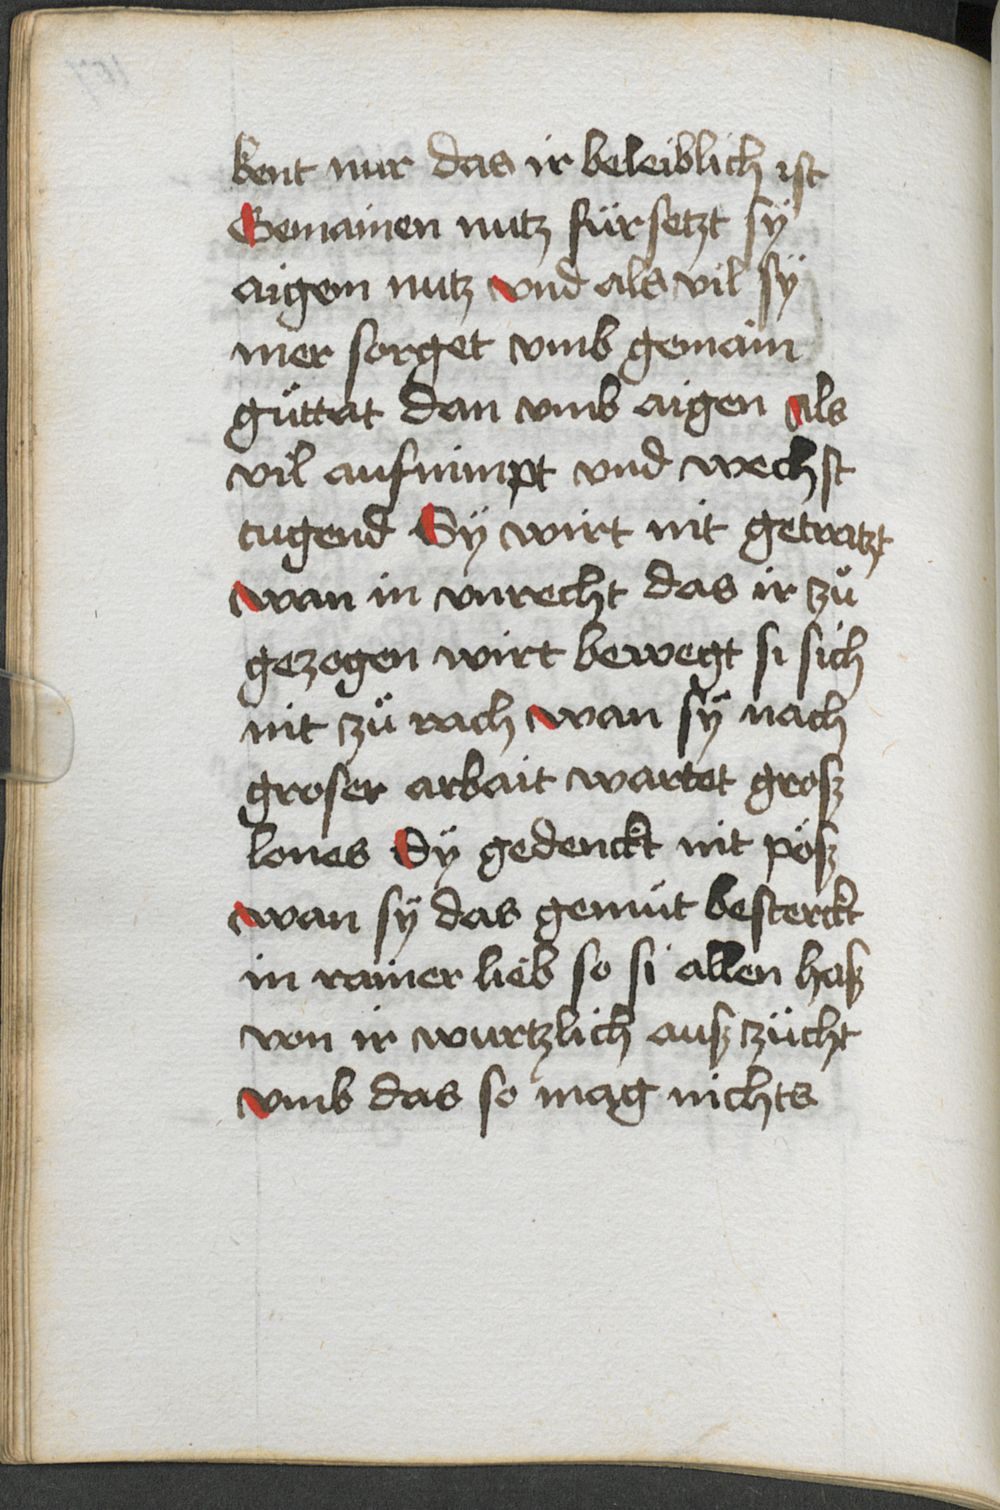 kent nur das ir beleiblich ist
Gemainen nutz fürsetzt sÿ
aigem nutz vnd als vil sÿ
mer sorget vmb gemain
guͤttat dan vmb aigen als
vil aufnimpt vnd wechst
tugend Sÿ wirt nit getratzt
wan in vnrecht das ir zuͦ
gezogen wirt bewegt si sich
nit zuͦ rach wan sÿ nach
groser arbait wartet grosz
lones Sÿ gedenckt nit pösz
wan sÿ das gemüt besterckt
in rainer lieb so si allen hasz
von ir wurtzlich ausz zücht
vmb das so mag nichts